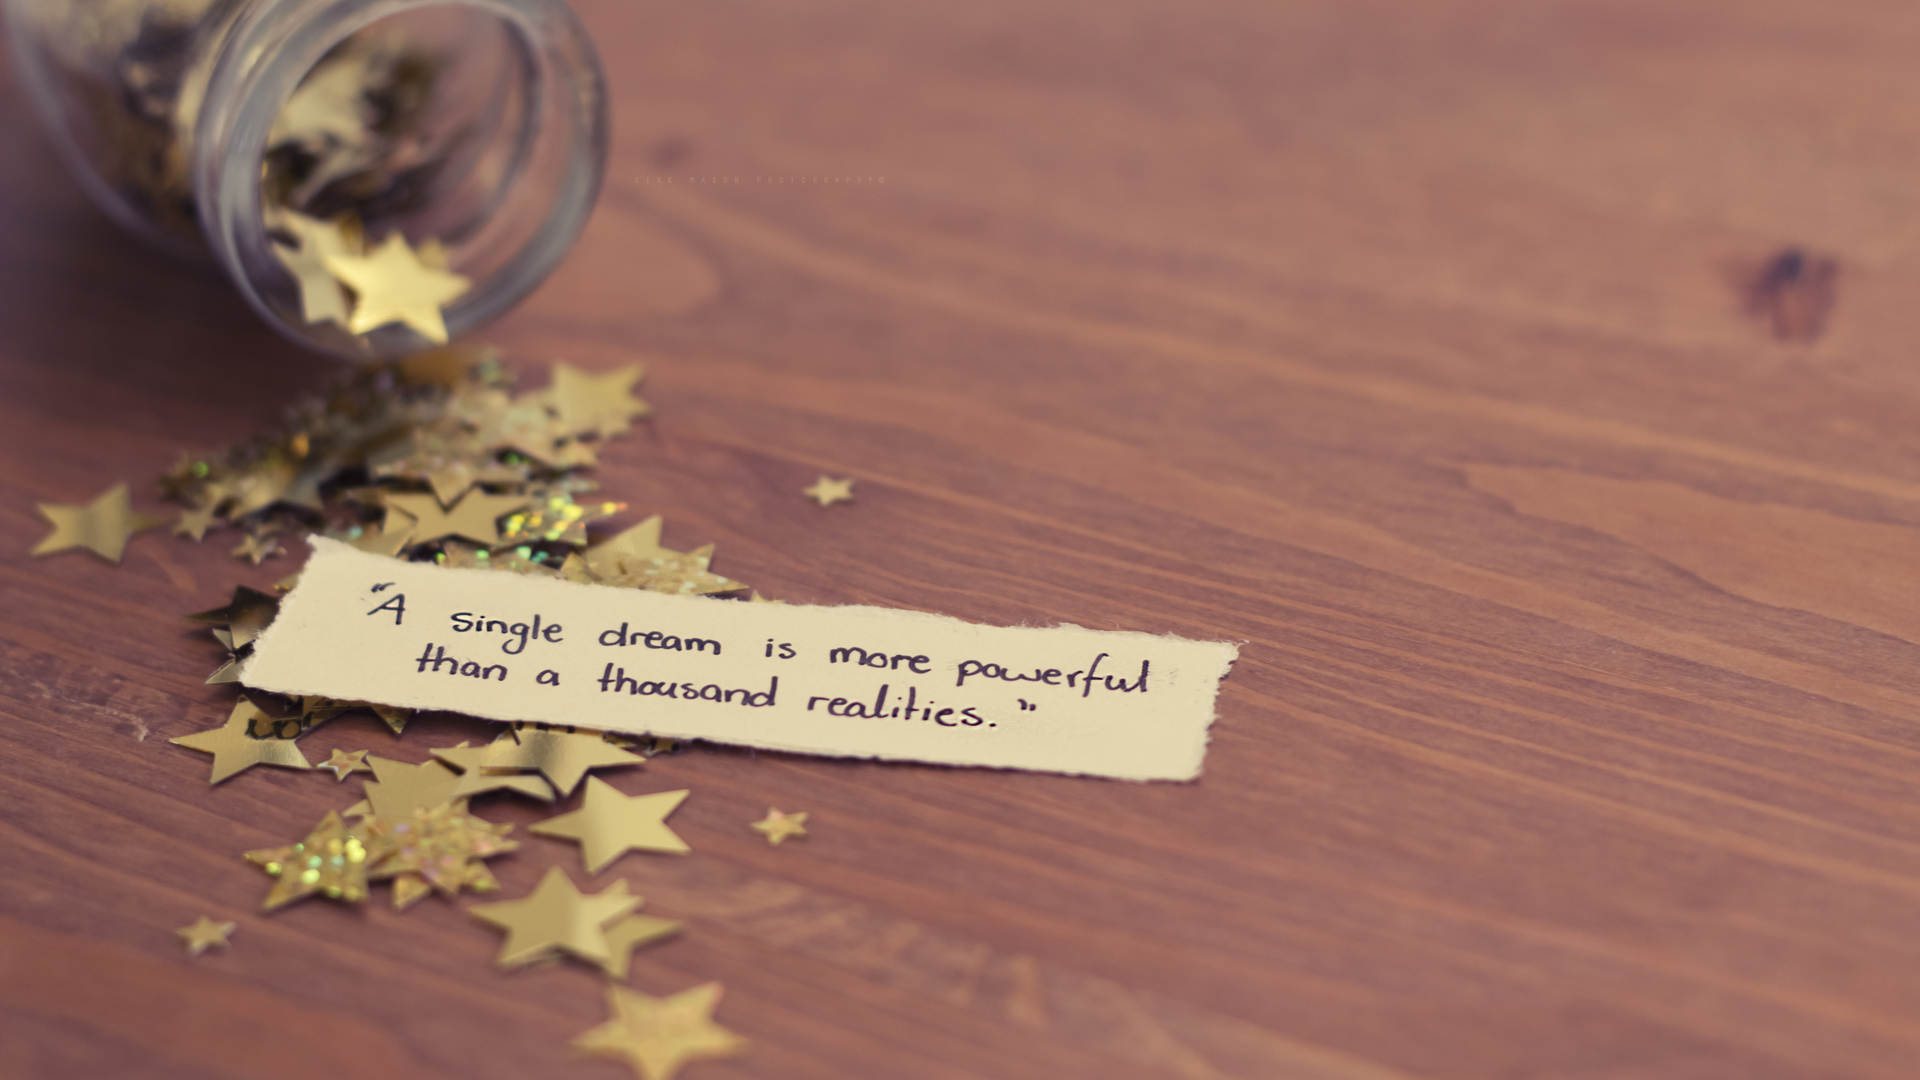 “A single dream is more powerful
than a thousand realities.”